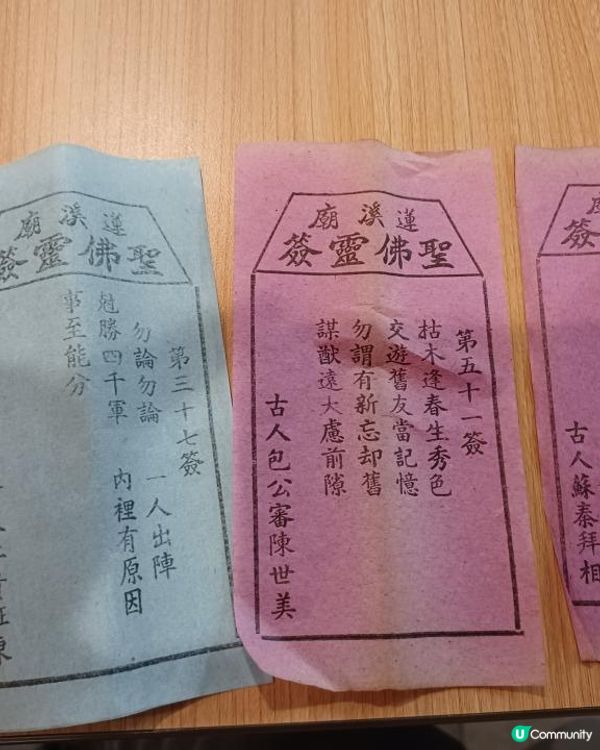 蓮溪廟
聖佛靈簽
第三十七簽
勿論勿論 一人出陣
尅勝四千軍 內裡有原因
事至能分
蓮溪廟
聖佛靈簽
第五十一簽
枯木逢春生秀色
交遊舊友當記憶
勿謂有新忘却舊
謀猷遠大慮前隙
古人包公審陳世美
廟
簽
古人蘇秦拜相
U Community